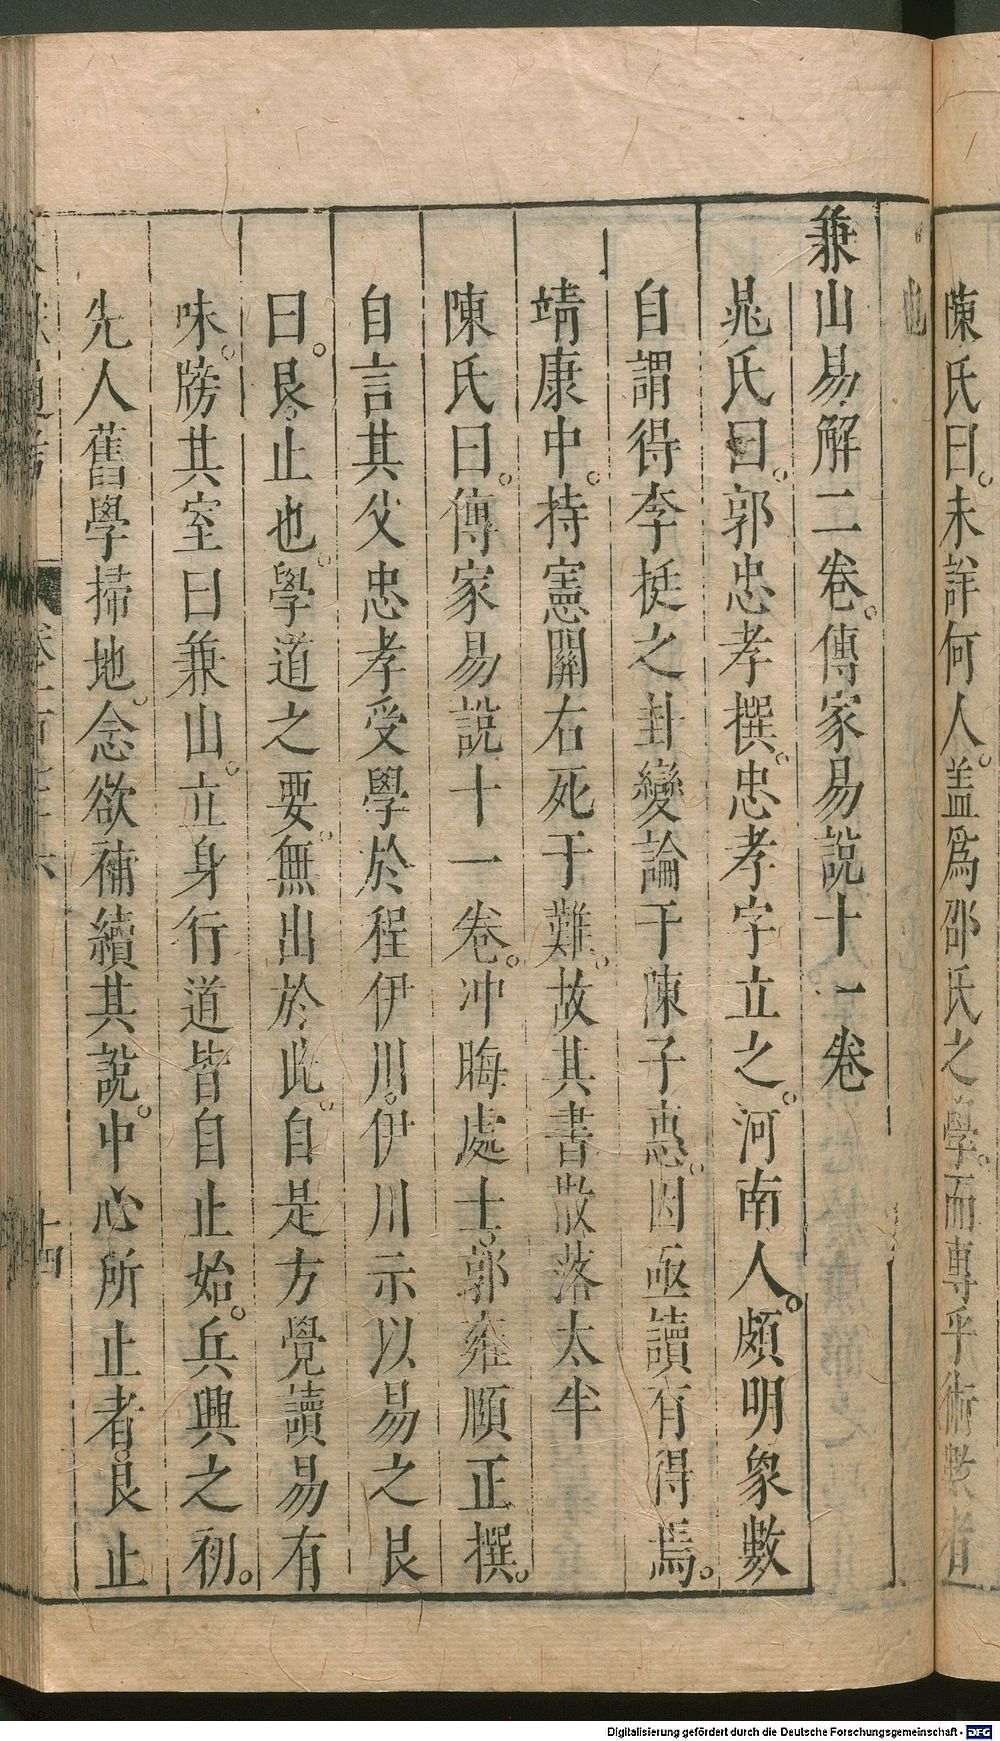 陳氏曰。未詳何人。盖爲邵氏之學。而專乎術數者
也
兼山易解二卷。傳家易說十一卷
晁氏曰。郭忠孝撰。忠孝字立之。河南人。頗明象數
自謂得李挺之卦變論于陳子惠。因亟讀有得焉。
靖康中。持憲關右死于難。故其書散落太半
陳氏曰。傳家易說十一卷。冲晦處士。郭雍頤正撰。
自言其父忠孝受學於程伊川。伊川示以易之艮
曰。艮。止也。學道之要。無出於此。自是方覺讀易有
味。牓其室曰兼山。立身行道皆自止始。兵興之初。
先人舊學掃地。念欲補續其說。中心所止者。艮止
十四
Digitalisierung gefördert durch die Deutsche Forschungsgemeinschaft - DFG